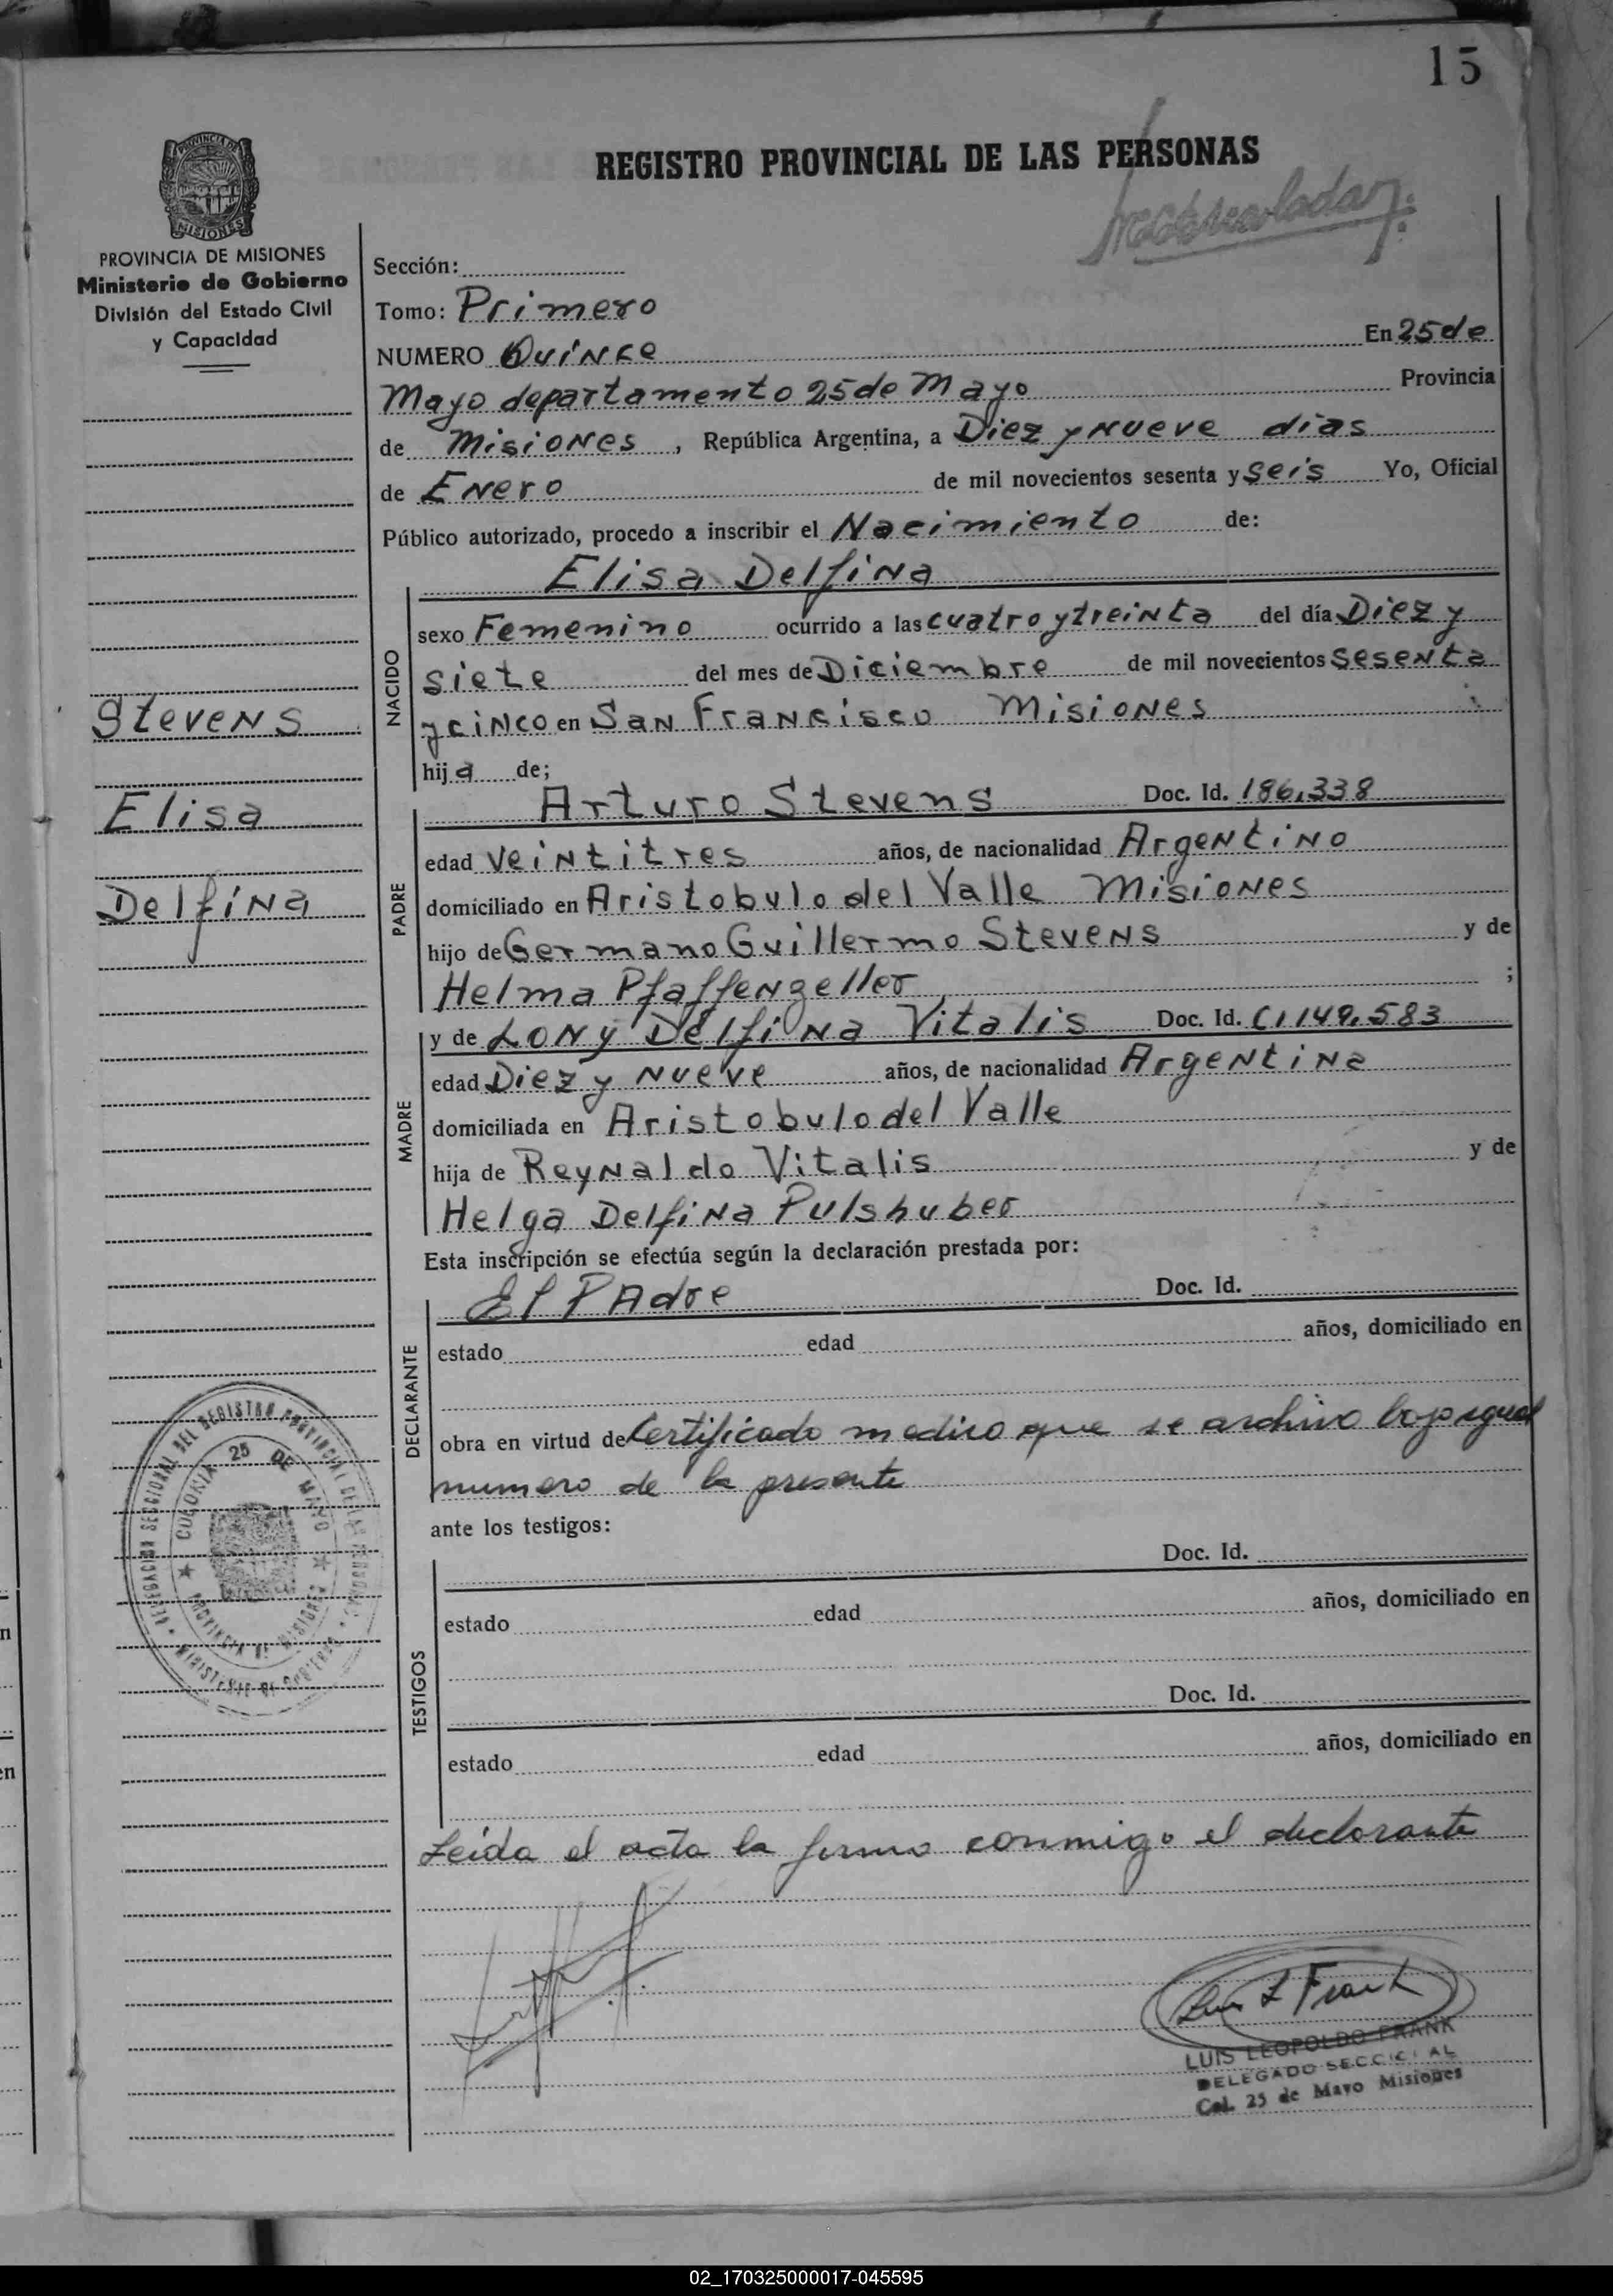 15
REGISTRO PROVINCIAL DE LAS PERSONAS
PROVINCIA DE
MISIONES
PROVINCIA DE MISIONES
Ministerio de Gobierno
División del Estado Civil
y Capacidad
Stevens
Elisa
Delfina
Sección:
Tomo: Primero
NUMERO Quince En 25 de
Mayo departamento 25 de Mayo Provincia
de Misiones, República Argentina, a Diez y nueve dias
de Enero de mil novecientos sesenta y seis Yo, Oficial
Público autorizado, procedo a inscribir el Nacimiento de:
Elisa Delfina
NACIDO
sexo Femenino ocurrido a las cuatro y treinta del día Diez y
siete del mes de Diciembre de mil novecientos sesenta
y cinco en San Francisco Misiones
hija de;
PADRE
Arturo Stevens Doc. Id. 186,338
edad veintitres años, de nacionalidad Argentino
domiciliado en Aristobulo del Valle Misiones
hijo de Germano Guillermo Stevens y de
Helma Pfaffenzeller ;
MADRE
y de Lony Delfina Vitalis Doc. Id. C,149,583
edad Diez y nueve años, de nacionalidad Argentina
domiciliada en Aristobulo del Valle
hija de Reynaldo Vitalis y de
Helga Delfina Pulshuber
Esta inscripción se efectúa según la declaración prestada por:
DECLARANTE
El PAdre Doc. Id.
estado edad años, domiciliado en
obra en virtud de Certificado medico que se archiva bajo igual
numero de la presente
ante los testigos:
TESTIGOS
Doc. Id.
estado edad años, domiciliado en
Doc. Id.
estado edad años, domiciliado en
Leída el acta la firma conmigo el declarante
DELEGACION SECCIONAL DEL REGISTRO PROVINCIAL DE LAS PERSONAS
MINISTERIO DE GOBIERNO
COLONIA 25 DE MAYO
PROVINCIA DE MISIONES
Luis L Frank
LUIS LEOPOLDO FRANK
DELEGADO SECCIONAL
Col. 25 de Mayo Misiones
02_170325000017-045595